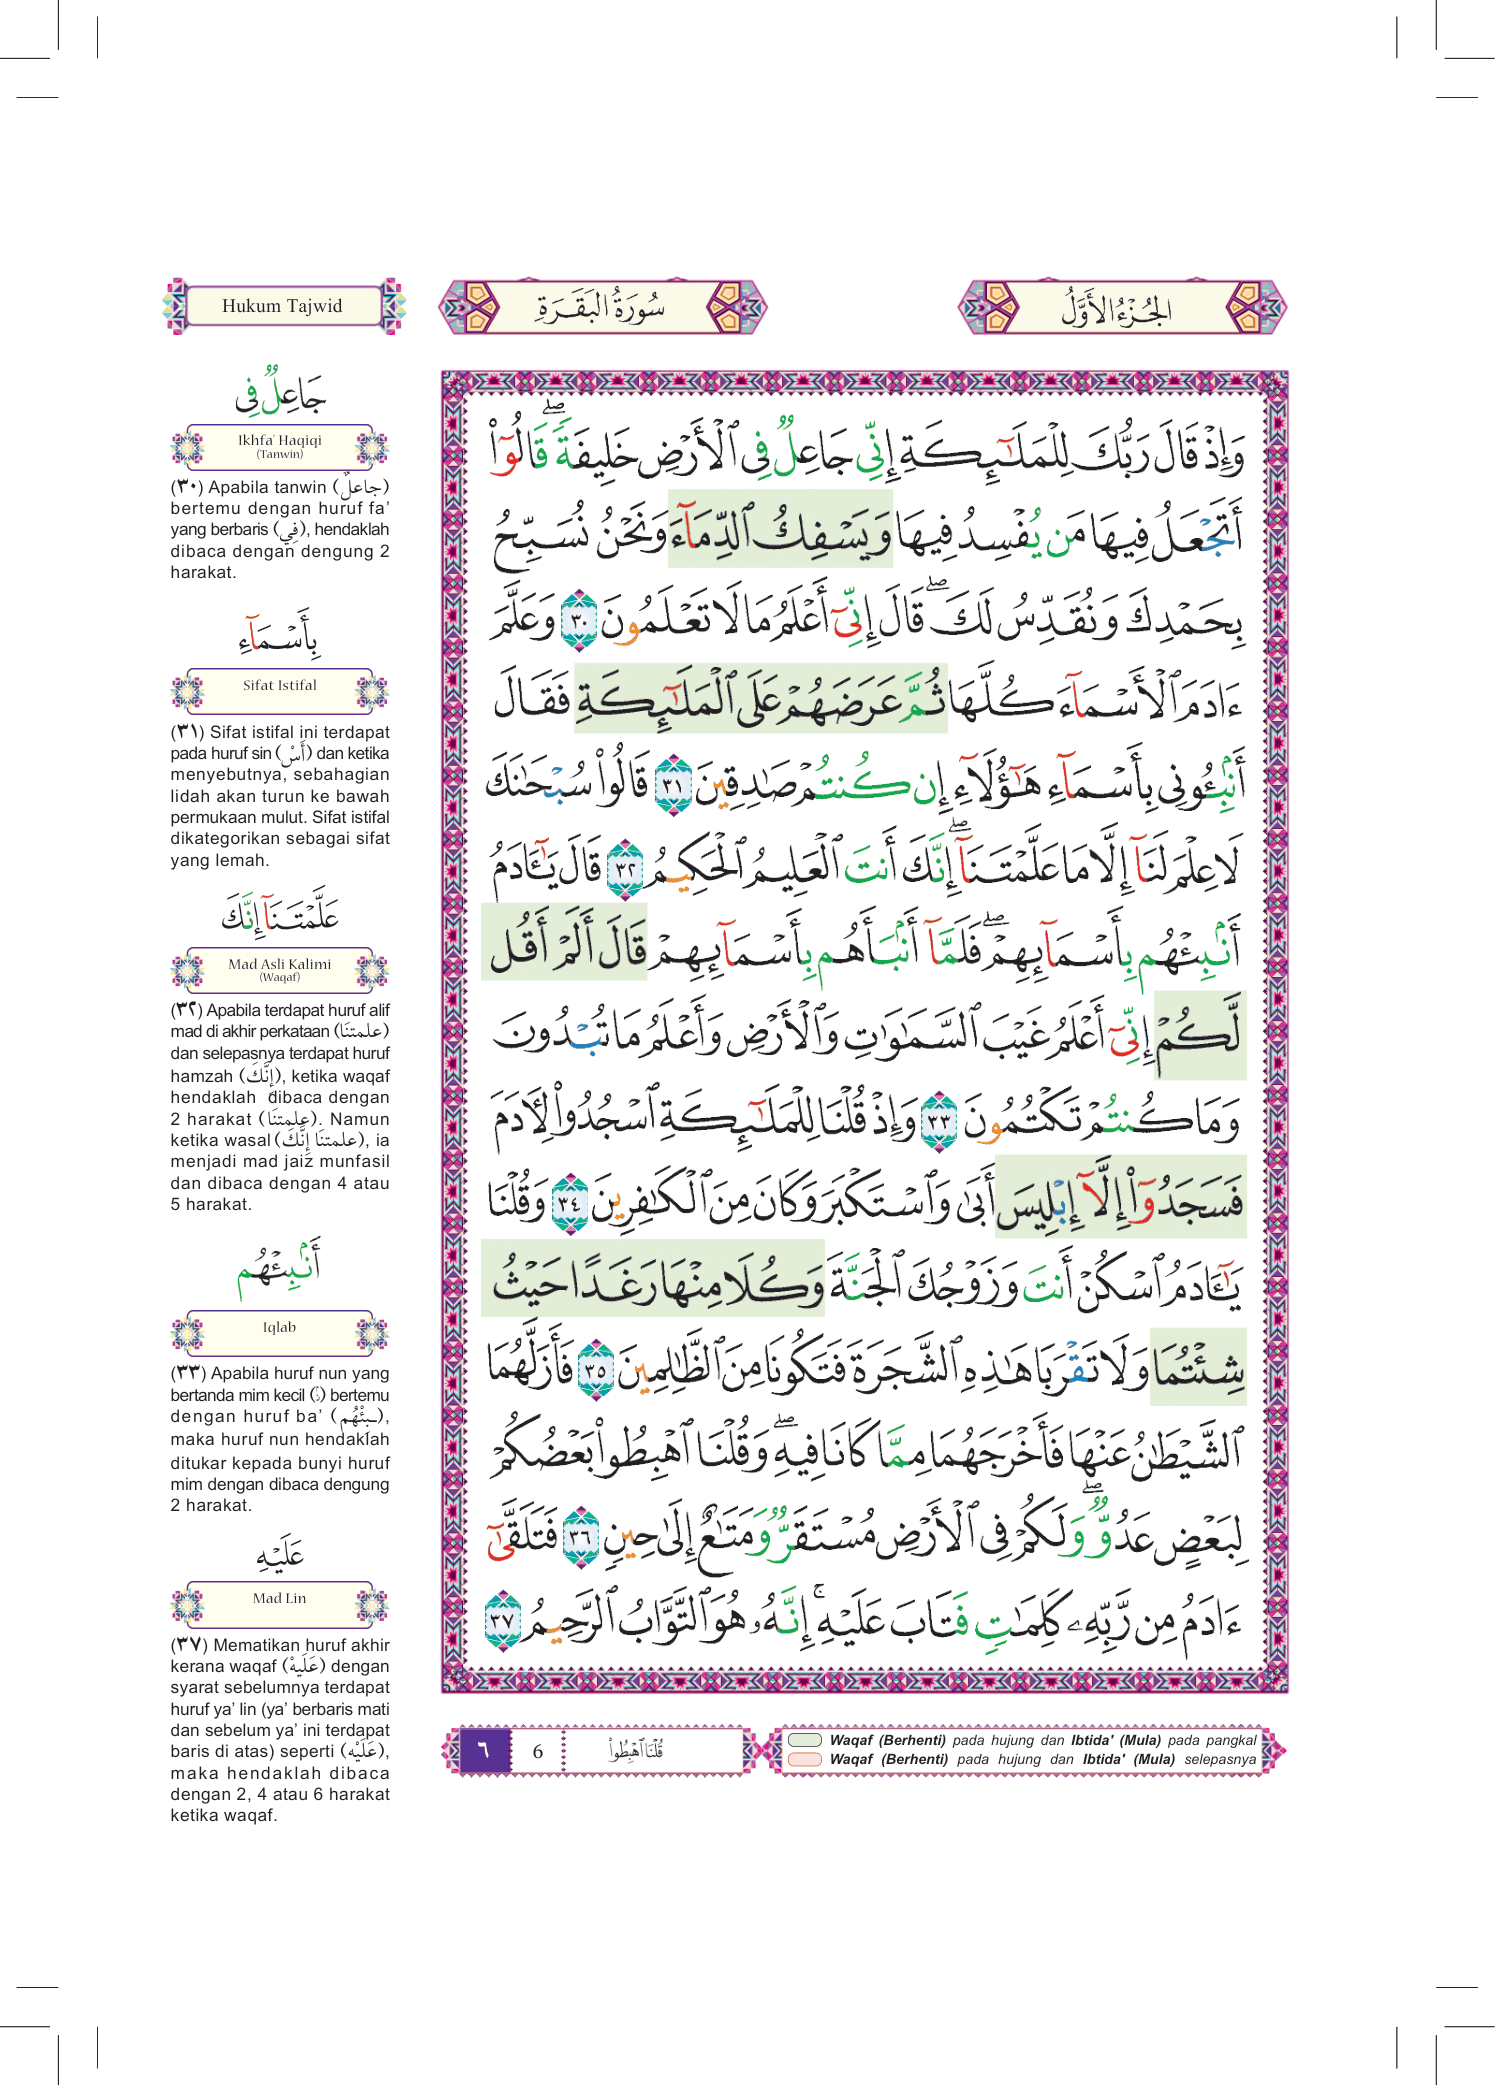 Hukum Tajwid
سُورَةُ البَقَرَةِ
الجُزْءُ الأَوَّلُ
جَاعِلٌ فِى
Ikhfa’ Haqiqi
(Tanwin)
(٣٠) Apabila tanwin (جاعلٌ)
bertemu dengan huruf fa’
yang berbaris (فِي), hendaklah
dibaca dengan dengung 2
harakat.
بِأَسْمَآءِ
Sifat Istifal
(٣١) Sifat istifal ini terdapat
pada huruf sin (أَسْ) dan ketika
menyebutnya, sebahagian
lidah akan turun ke bawah
permukaan mulut. Sifat istifal
dikategorikan sebagai sifat
yang lemah.
عَلَّمْتَنَآ إِنَّكَ
Mad Asli Kalimi
(Waqaf)
(٣٢) Apabila terdapat huruf alif
mad di akhir perkataan (علمتنَا)
dan selepasnya terdapat huruf
hamzah (إِنَّك), ketika waqaf
hendaklah dibaca dengan
2 harakat (علمتنَا). Namun
ketika wasal (علمتنَا إِنَّكَ), ia
menjadi mad jaiz munfasil
dan dibaca dengan 4 atau
5 harakat.
أَنۢبِئْهُم
Iqlab
(٣٣) Apabila huruf nun yang
bertanda mim kecil (نۢ) bertemu
dengan huruf ba’ (ـبِئْهُم),
maka huruf nun hendaklah
ditukar kepada bunyi huruf
mim dengan dibaca dengung
2 harakat.
عَلَيْهِ
Mad Lin
(٣٧) Mematikan huruf akhir
kerana waqaf (عَلَيهْ) dengan
syarat sebelumnya terdapat
huruf ya’ lin (ya’ berbaris mati
dan sebelum ya’ ini terdapat
baris di atas) seperti (عَلَيْه),
maka hendaklah dibaca
dengan 2, 4 atau 6 harakat
ketika waqaf.
وَإِذْ قَالَ رَبُّكَ لِلْمَلَـٰٓئِكَةِ إِنِّى جَاعِلٌ فِى ٱلْأَرْضِ خَلِيفَةً ۖ قَالُوٓا۟
أَتَجْعَلُ فِيهَا مَن يُفْسِدُ فِيهَا وَيَسْفِكُ ٱلدِّمَآءَ وَنَحْنُ نُسَبِّحُ
بِحَمْدِكَ وَنُقَدِّسُ لَكَ ۖ قَالَ إِنِّىٓ أَعْلَمُ مَا لَا تَعْلَمُونَ ٣٠ وَعَلَّمَ
ءَادَمَ ٱلْأَسْمَآءَ كُلَّهَا ثُمَّ عَرَضَهُمْ عَلَى ٱلْمَلَـٰٓئِكَةِ فَقَالَ
أَنۢبِـُٔونِى بِأَسْمَآءِ هَـٰٓؤُلَآءِ إِن كُنتُمْ صَـٰدِقِينَ ٣١ قَالُوا۟ سُبْحَـٰنَكَ
لَا عِلْمَ لَنَآ إِلَّا مَا عَلَّمْتَنَآ ۖ إِنَّكَ أَنتَ ٱلْعَلِيمُ ٱلْحَكِيمُ ٣٢ قَالَ يَـٰٓـَٔادَمُ
أَنۢبِئْهُم بِأَسْمَآئِهِمْ ۖ فَلَمَّآ أَنۢبَأَهُم بِأَسْمَآئِهِمْ قَالَ أَلَمْ أَقُل
لَّكُمْ إِنِّىٓ أَعْلَمُ غَيْبَ ٱلسَّمَـٰوَٰتِ وَٱلْأَرْضِ وَأَعْلَمُ مَا تُبْدُونَ
وَمَا كُنتُمْ تَكْتُمُونَ ٣٣ وَإِذْ قُلْنَا لِلْمَلَـٰٓئِكَةِ ٱسْجُدُوا۟ لِـَٔادَمَ
فَسَجَدُوٓا۟ إِلَّآ إِبْلِيسَ أَبَىٰ وَٱسْتَكْبَرَ وَكَانَ مِنَ ٱلْكَـٰفِرِينَ ٣٤ وَقُلْنَا
يَـٰٓـَٔادَمُ ٱسْكُنْ أَنتَ وَزَوْجُكَ ٱلْجَنَّةَ وَكُلَا مِنْهَا رَغَدًا حَيْثُ
شِئْتُمَا وَلَا تَقْرَبَا هَـٰذِهِ ٱلشَّجَرَةَ فَتَكُونَا مِنَ ٱلظَّـٰلِمِينَ ٣٥ فَأَزَلَّهُمَا
ٱلشَّيْطَـٰنُ عَنْهَا فَأَخْرَجَهُمَا مِمَّا كَانَا فِيهِ ۖ وَقُلْنَا ٱهْبِطُوا۟ بَعْضُكُمْ
لِبَعْضٍ عَدُوٌّ ۖ وَلَكُمْ فِى ٱلْأَرْضِ مُسْتَقَرٌّ وَمَتَـٰعٌ إِلَىٰ حِينٍ ٣٦ فَتَلَقَّىٰٓ
ءَادَمُ مِن رَّبِّهِۦ كَلِمَـٰتٍ فَتَابَ عَلَيْهِ ۚ إِنَّهُۥ هُوَ ٱلتَّوَّابُ ٱلرَّحِيمُ ٣٧
٦ 6 قُلْنَا ٱهْبِطُوا۟
Waqaf (Berhenti) pada hujung dan Ibtida' (Mula) pada pangkal
Waqaf (Berhenti) pada hujung dan Ibtida' (Mula) selepasnya